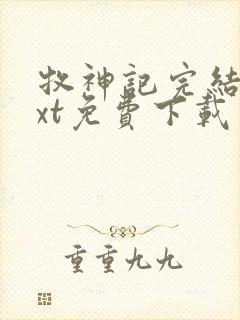 牧神記完結
xt免費下載
重重九九